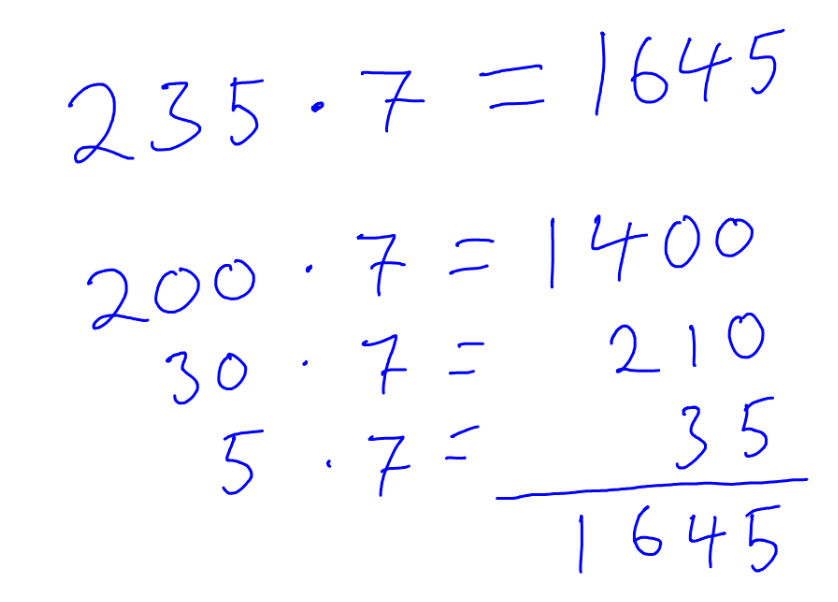 235 · 7 = 1645
200 · 7 = 1400
30 · 7 = 210
5 · 7 = 35
1645